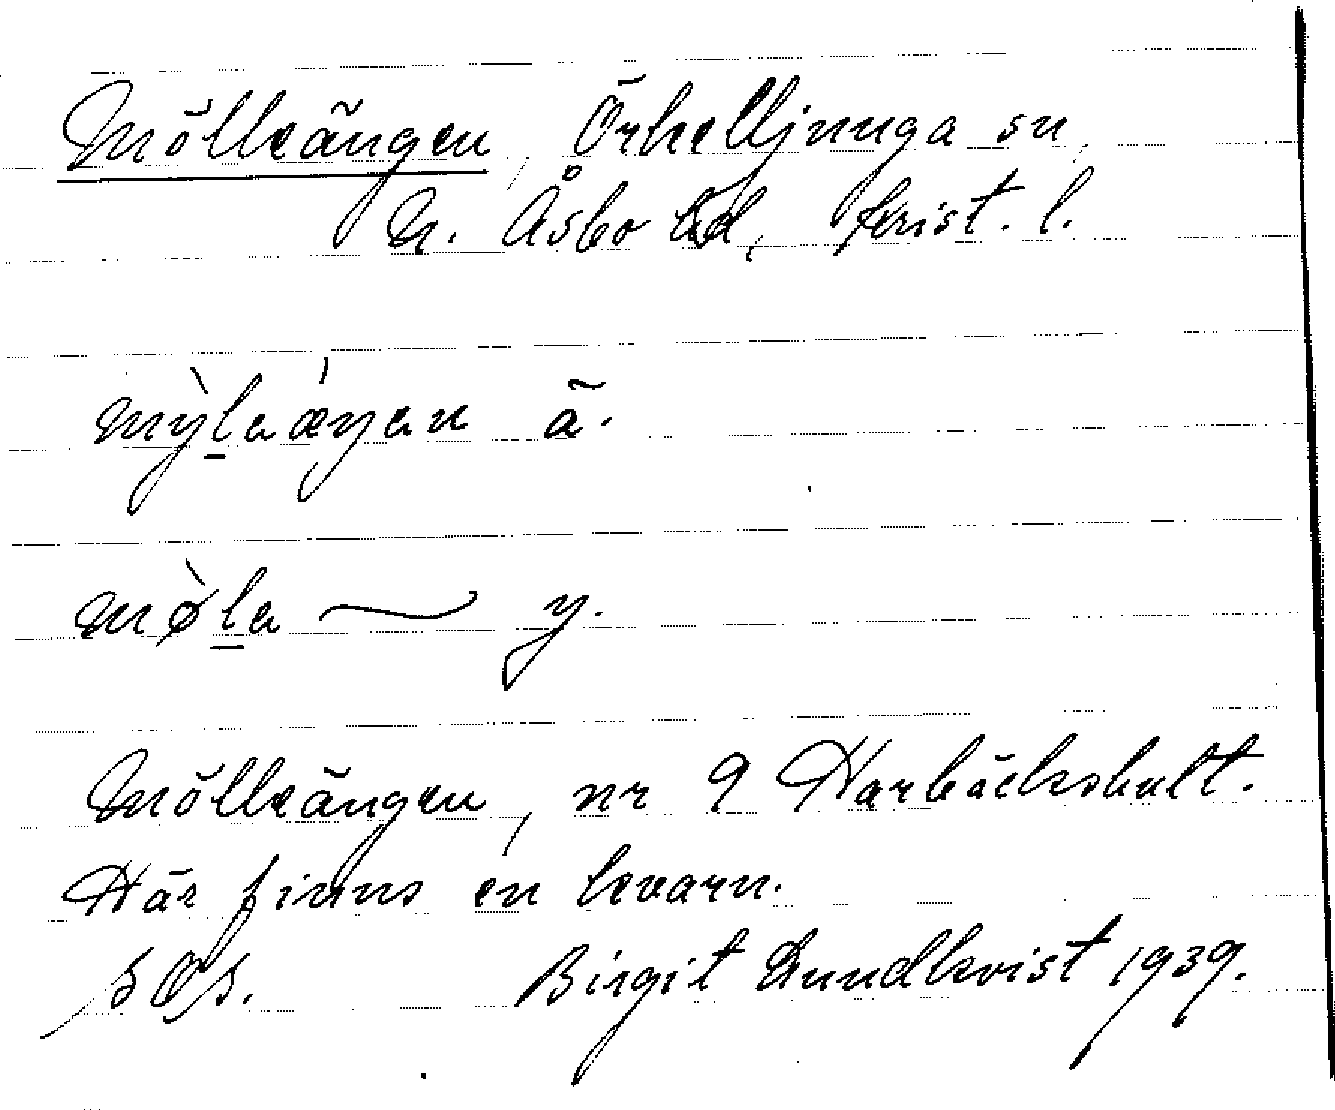 Mölleängen, Örkelljunga sn,
N. Åsbo hd, Krist. l.
mỳla æ´ŋan ä.
mø̀la ~ y.
Mölleängen, nr 9 Harbäckshult.
Här finns en kvarn.
Birgit Lundkvist 1939.